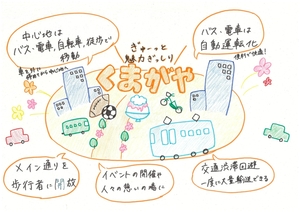 中心地は
バス、電車、自転車、徒歩で
移動
ぎゅーっと
魅力ぎっしり
くまがや
バス、電車は
自動運転化
メイン通りを
歩行者に開放
イベントの開催や
人々の憩いの場に
交通渋滞回避
一度に大量輸送できる